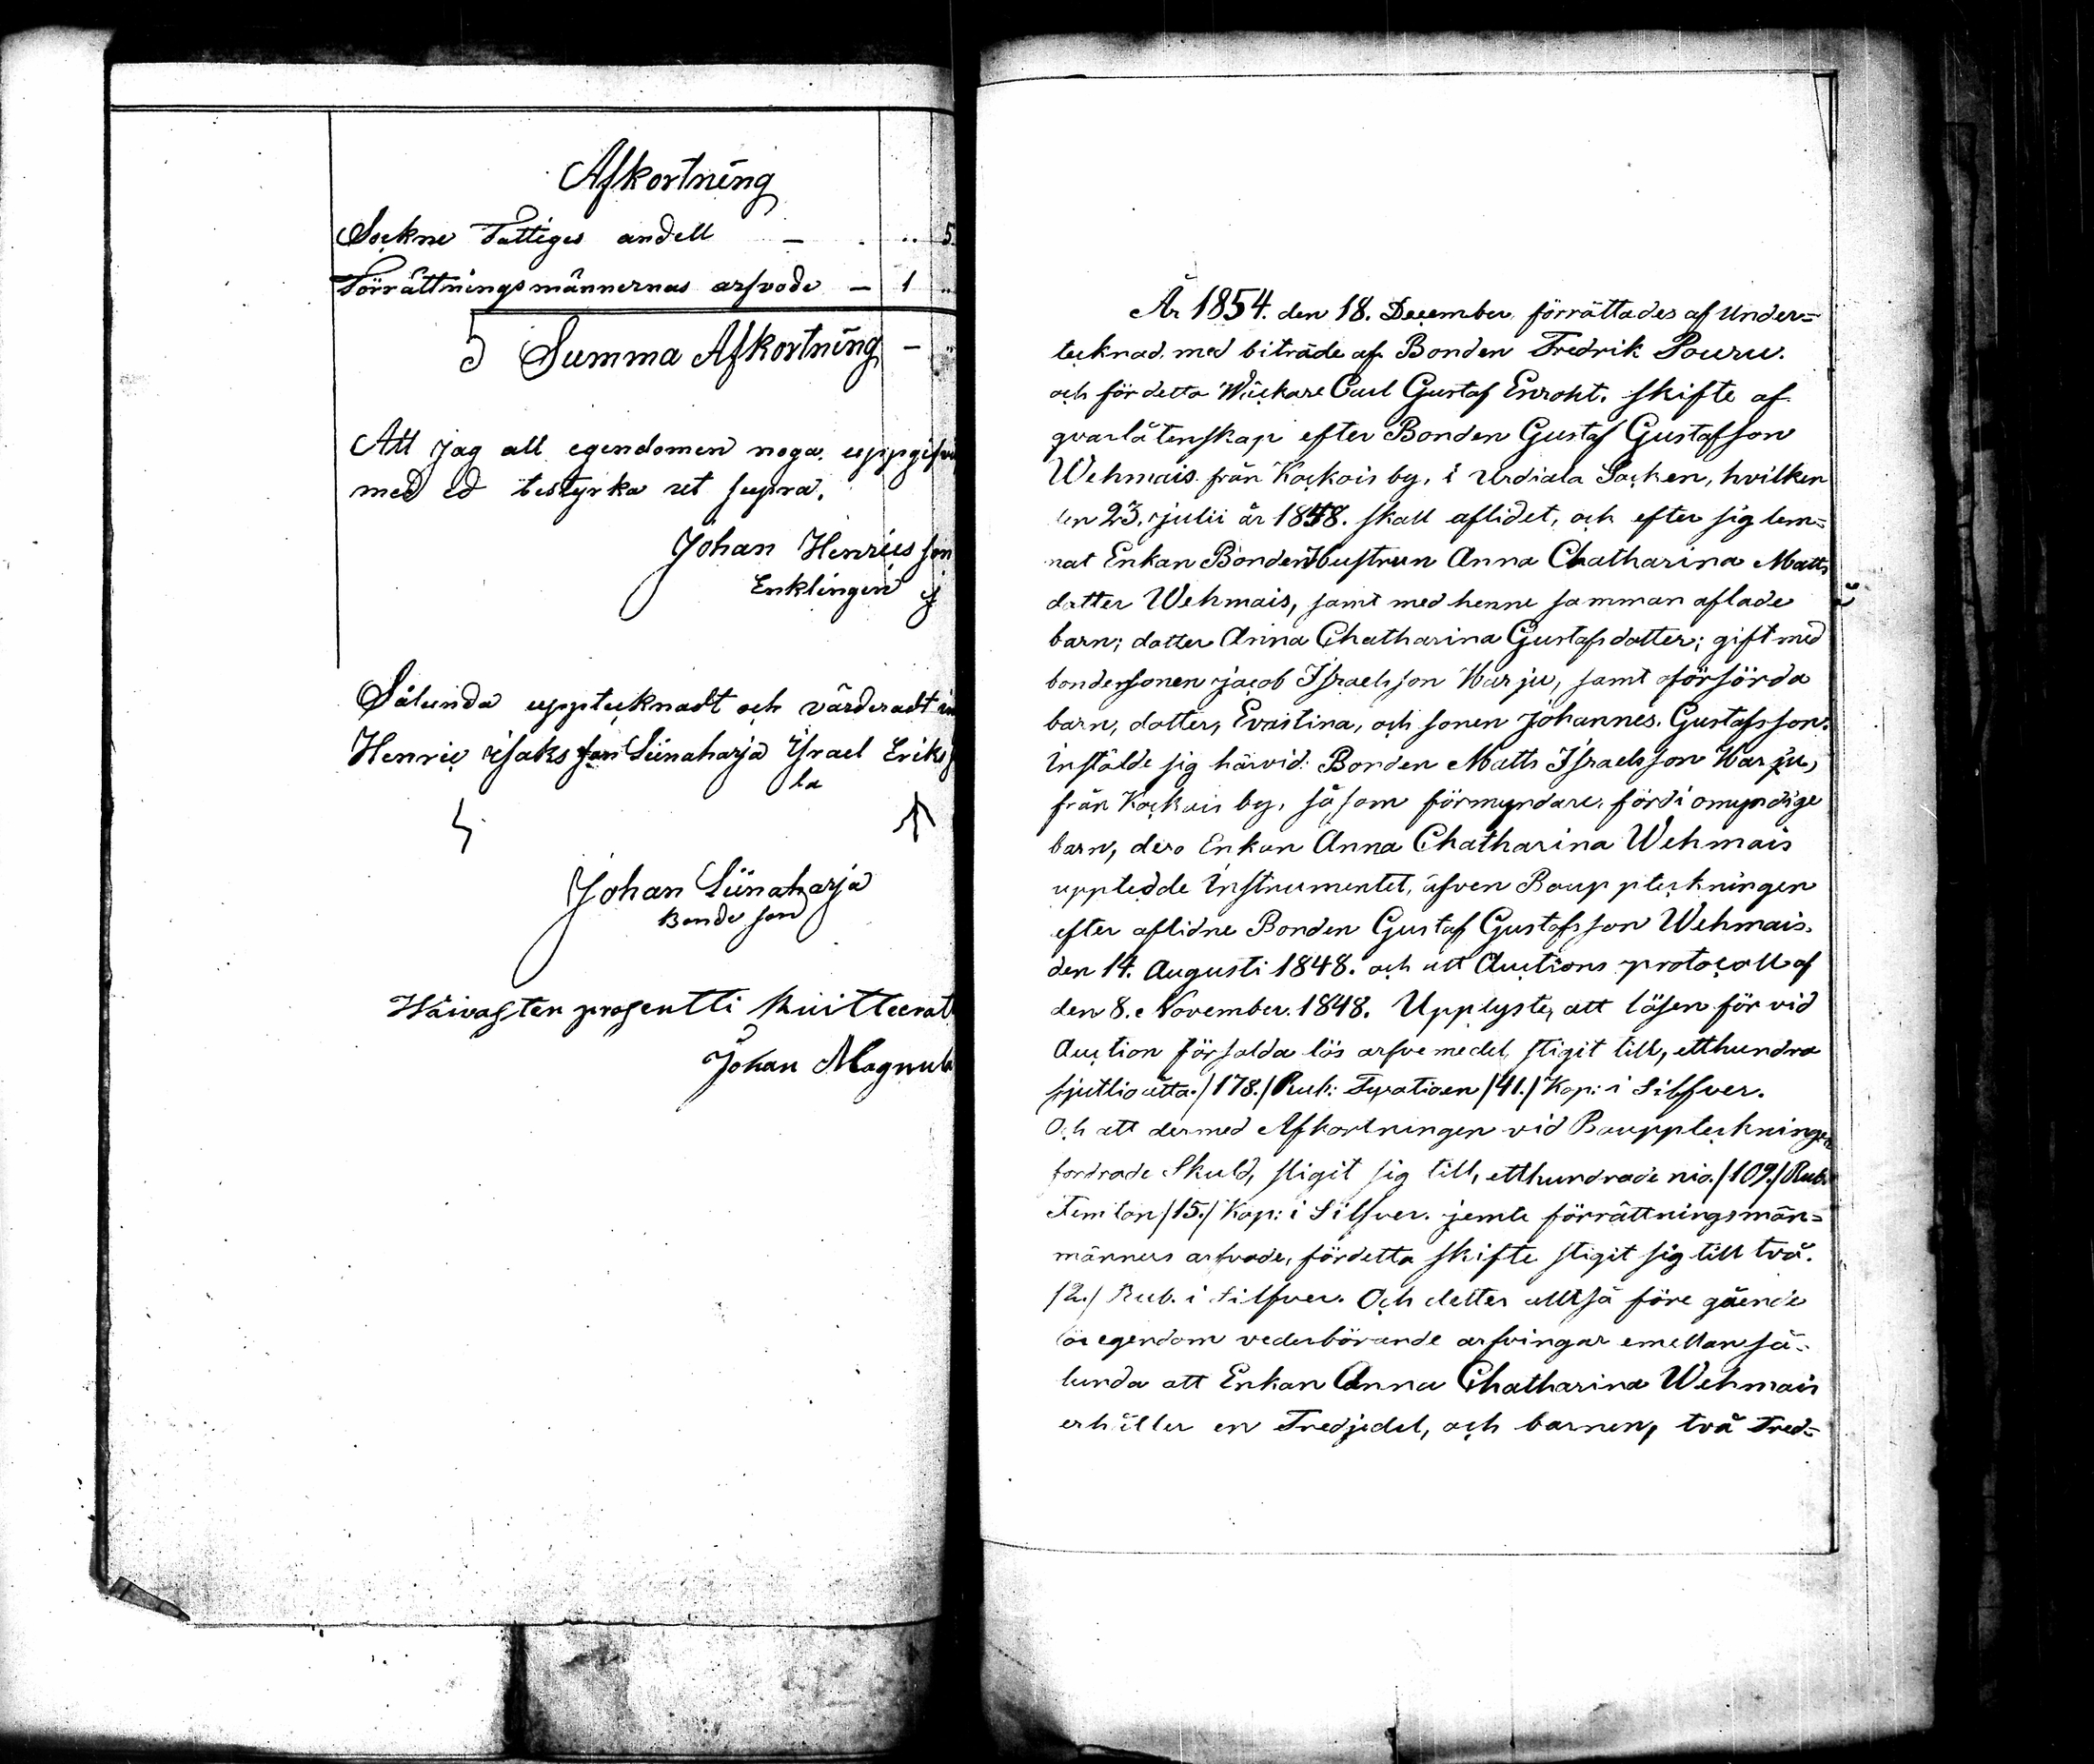 Afkortning
Sockne Fattiges andell – . .. 5.
Förrättningsmännernas arfvode – 1 ..
Summa Afkortning – ..
Att jag all egendomen noga uppgifv
med ed bestyrka ut supra.
Johan Henricsson
Enklingen
Sålunda upptecknadt och värderadt
Henric Isaksson Liinaharja Israel Eriks
la
Johan Liinaharja
Bonde son
Waivasten prosentti kuitteerat
Johan Magnul
År 1854. den 18. December förrättades af Under=
tecknad. med biträde af Bonden Fredrik Pouru.
och för detta Wäckare Carl Gustaf Enroht. skifte af
qvarlåtenskap efter Bonden Gustaf Gustafson
Wehmais från Kockois by, i Urdiala Socken, hvilken
den 23. Julii år 1848. skall aflidet, och efter sig lem=
nat Enkan BondenHustrun Anna Chatharina Matts
dotter Wehmais, samt med henne samman aflade
barn; dotter Anna Chatharina Gustafsdotter; gift med
bondersonen Jacob Israelsson Harju, samt oförsörda
barn, dotter, Evastina, och sonen Johannes. Gustafsson.
Instälde sig härvid: Bonden Matts Israelsson Harju,
från Kockois by, så som förmyndare, för di omyndige
barn, dero Enkan Anna Chatharina Wehmais
uppledde Instrumentet, äfven Bouppteckningen
efter aflidne Bonden Gustaf Gustafsson Wehmais.
den 14. Augusti 1848. och ett Auctions protocoll af
den 8. November. 1848. Upplyste, att lösen för vid
Auction försålda lös arfve medel stigit till, etthundra
sjuttio åtta. /178./ Rub: Fyratioen /41./ Kop: i Silfver.
Och att dermed Afkortningen vid Bouppteckningen
fordrade Skuld, stigit sig till, etthundrade nio. /109./ Rub.
Femton /15./ Kop: i Silfver. jemte förrättningsmän=
männers arfvode, fördetta skifte stigit sig till två.
/2./ Rub. i Silfver. Och delter alltså före gående
lös egendom vederbörande arfvingar emellan så=
lunda att Enkan Anna Chatharina Wehmais
erhåller en Tredjedel, och barnen, två Tred=